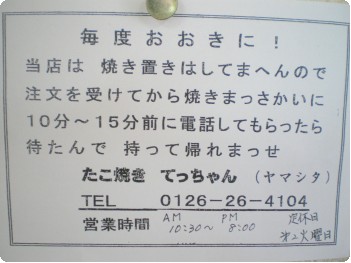 毎度おおきに！
当店は 焼き置きはしてまへんので
注文を受けてから焼きまっさかいに
10分～15分前に電話してもらったら
待たんで 持って帰れまっせ
たこ焼き てっちゃん （ヤマシタ）
TEL 0126-26-4104
営業時間 AM 10:30～ PM 8:00
定休日 第2火曜日